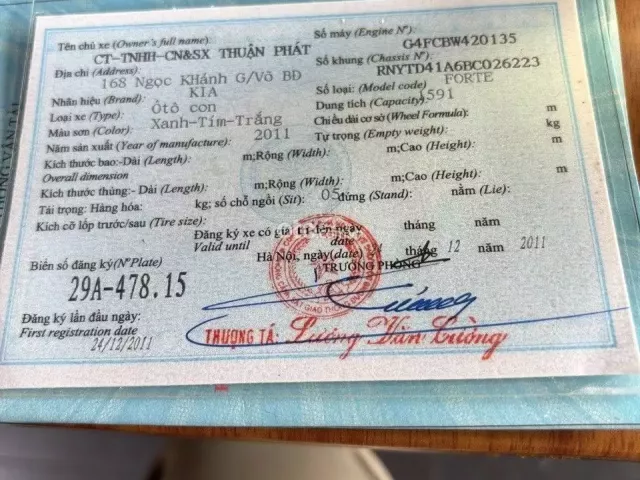 Tên chủ xe (Owner's full name): Số máy (Engine Nº):
CT-TNHH-CN&SX THUẬN PHÁT G4FCBW420135
Địa chỉ (Address): Số khung (Chassis Nº):
168 Ngọc KHánh G/Võ BĐ RNYTD41A6BC026223
Nhãn hiệu (Brand): KIA Số loại: (Model code) FORTE
Loại xe (Type): Ôtô con Dung tích (Capacity): 1591
Màu sơn (Color): Xanh-Tím-Trắng Chiều dài cơ sở (Wheel Formula): m
Năm sản xuất (Year of manufacture): 2011 Tự trọng (Empty weight): kg
Kích thước bao:-Dài (Length): m;Rộng (Width): m;Cao (Height): m
Overall dimension
Kích thước thùng:- Dài (Length): m;Rộng (Width): m;Cao (Height): m
Tải trọng: Hàng hóa: kg; số chỗ ngồi (Sit): 05 đứng (Stand): nằm (Lie):
Kích cỡ lốp trước/sau (Tire size):
Đăng ký xe có giá trị đến ngày tháng năm
Valid until date
Hà Nội, ngày(date) tháng 12 năm 2011
Biển số đăng ký(Nº Plate) TRƯỞNG PHÒNG
29A-478.15
Đăng ký lần đầu ngày:
First registration date
24/12/2011
THƯỢNG TÁ: Lương Văn Cường